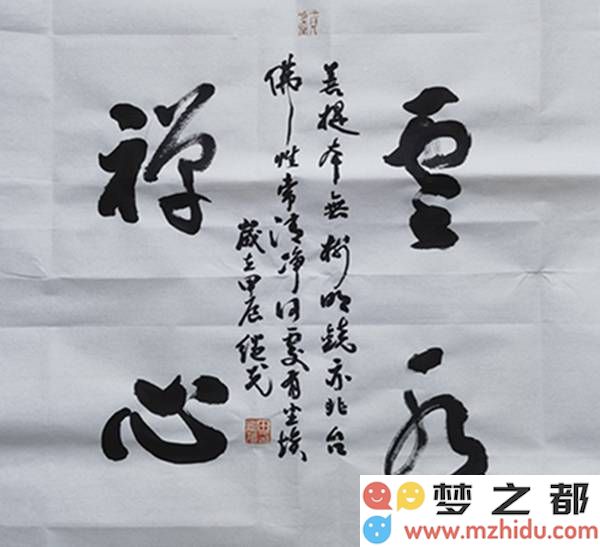 雲水
菩提本無樹明鏡亦非台
佛性常清净何處有尘埃
歲在甲辰继光
禅心
梦之都
www.mzhidu.com